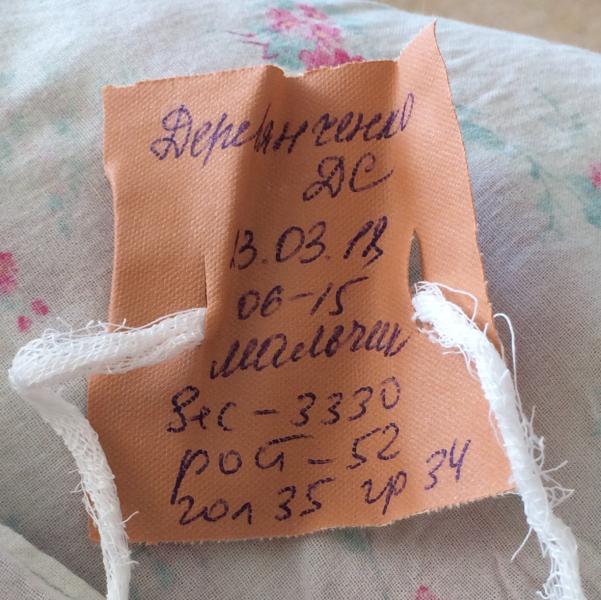 Деревянченко
ДС
13.03.18
06-15
мальчик
вес - 3330
рост - 52
гол 35 гр 34